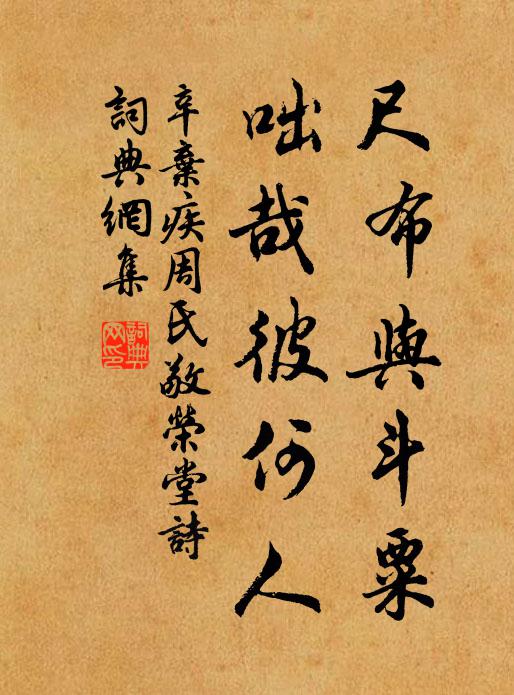 尺布與斗粟
咄哉彼何人
辛棄疾周氏敬榮堂詩
詞典網集
詞典网印